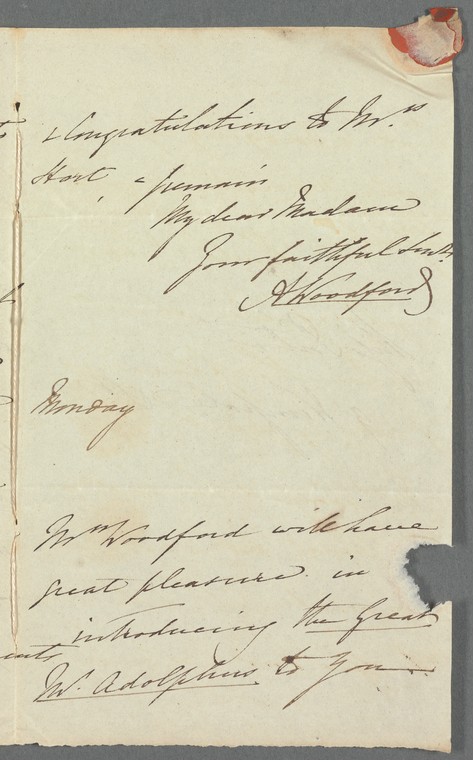 & Congratulations to Mrs
Hort, & remain
My dear Madam
Your faithful Servt
A Woodford
Monday
Mrs Woodford will have
great pleasure in
introducing the Great
Mr. Adolphus to You